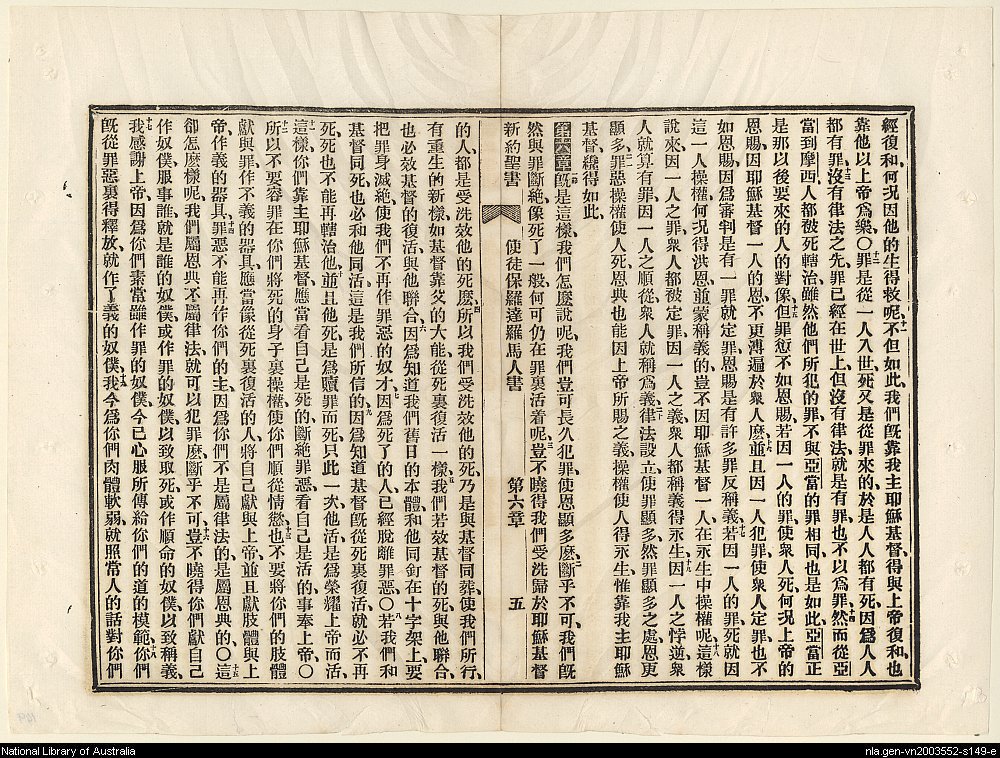 經復和何况因他的生得救呢、十一不但如此、我們旣靠我主耶穌基督、得與上帝復和、也
靠他以上帝爲樂、○十二罪是從一人入世、死又是從罪來的、於是人人都有死、因爲人人
都有罪、十三沒有律法之先、罪已經在世上、但沒有律法、就是有罪、也不以爲罪、十四然而從亞
當到摩西、人都被死轄治、雖然他們所犯的罪、不與亞當的罪相同、也是如此、亞當正
是那以後要來的人的對像、十五但罪愆不如恩賜、若因一人的罪、使衆人死、何况上帝的
恩賜、因耶穌基督一人的恩、不更溥遍於衆人麽、十六並且因一人犯罪、使衆人定罪、也不
如恩賜、因爲審判是有一罪就定罪、恩賜是有許多罪反稱義、十七若因一人的罪、死就因
這一人操權、何况得洪恩、並蒙稱義的、豈不因耶穌基督一人、在永生中操權呢、十八這樣
說來、因一人之罪、衆人都被定罪、因一人之義、衆人都稱義得永生、十九因一人之悖逆、衆
人就算有罪、因一人之順從、衆人就稱爲義、二十律法設立、使罪顯多、然罪顯多之處、恩更
顯多、二一罪惡操權、使人死、恩典也能因上帝所賜之義操權、使人得永生、惟靠我主耶穌
基督纔得如此、
第六章 一節旣是這樣、我們怎麽說呢、我們豈可長久犯罪、使恩顯多麽、二斷乎不可、我們旣
然與罪斷絕、像死了一般、何可仍在罪裏活着呢、三豈不曉得我們受洗歸於耶穌基督
新約聖書 使徒保羅達羅馬人書 第六章 五
的人、都是受洗效他的死麽、四所以我們受洗效他的死、乃是與基督同葬、使我們所行、
有重生的新樣、如基督靠父的大能、從死裏復活一樣、五我們若效基督的死、與他聯合、
也必效基督的復活、與他聯合、六因爲知道我們舊日的本體、和他同釘在十字架上、要
把罪身滅絕、使我們不再作罪惡的奴才、七因爲死了的人、已經脫離罪惡、○八若我們和
基督同死、也必和他同活、這是我們所信的、九因爲知道基督旣從死裏復活、就必不再
死、死也不能再轄治他、十並且他死、是爲贖罪而死、只此一次、他活、是爲榮耀上帝而活、
十一這樣、你們靠主耶穌基督、應當看自己是死的、斷絕罪惡、看自己是活的、事奉上帝、○
十二所以不要容罪在你們將死的身子裏操權、使你們順從情慾、十三也不要將你們的肢體
獻與罪、作不義的器具、應當像從死裏復活的人、將自己獻與上帝、並且獻肢體與上
帝、作義的器具、十四罪惡不能再作你們的主、因爲你們不是屬律法的、是屬恩典的、○十五這
卻怎麽樣呢、我們屬恩典、不屬律法、就可以犯罪麽、斷乎不可、十六豈不曉得你們獻自己
作奴僕、服事誰、就是誰的奴僕、或作罪的奴僕、以致取死、或作順命的奴僕、以致稱義、
十七我感謝上帝、因爲你們素常雖作罪的奴僕、今已心服所傳給你們的道的模範、十八你們
旣從罪惡裏得釋放、就作了義的奴僕、十九我今爲你們肉體軟弱、就照常人的話對你們
National Library of Australia
nla.gen-vn2003552-s149-e